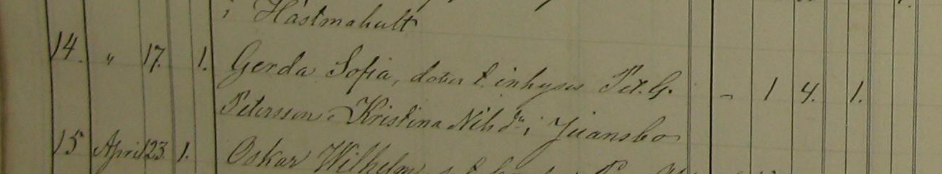 i Hästmahult
14. " 17. 1. Gerda Sofia, dotter t. inhyses Pet. G. - 1 4. 1.
Petersson o Kristina Nils dr i Juansbo
15 April 23 1. Oskar Wilhelm